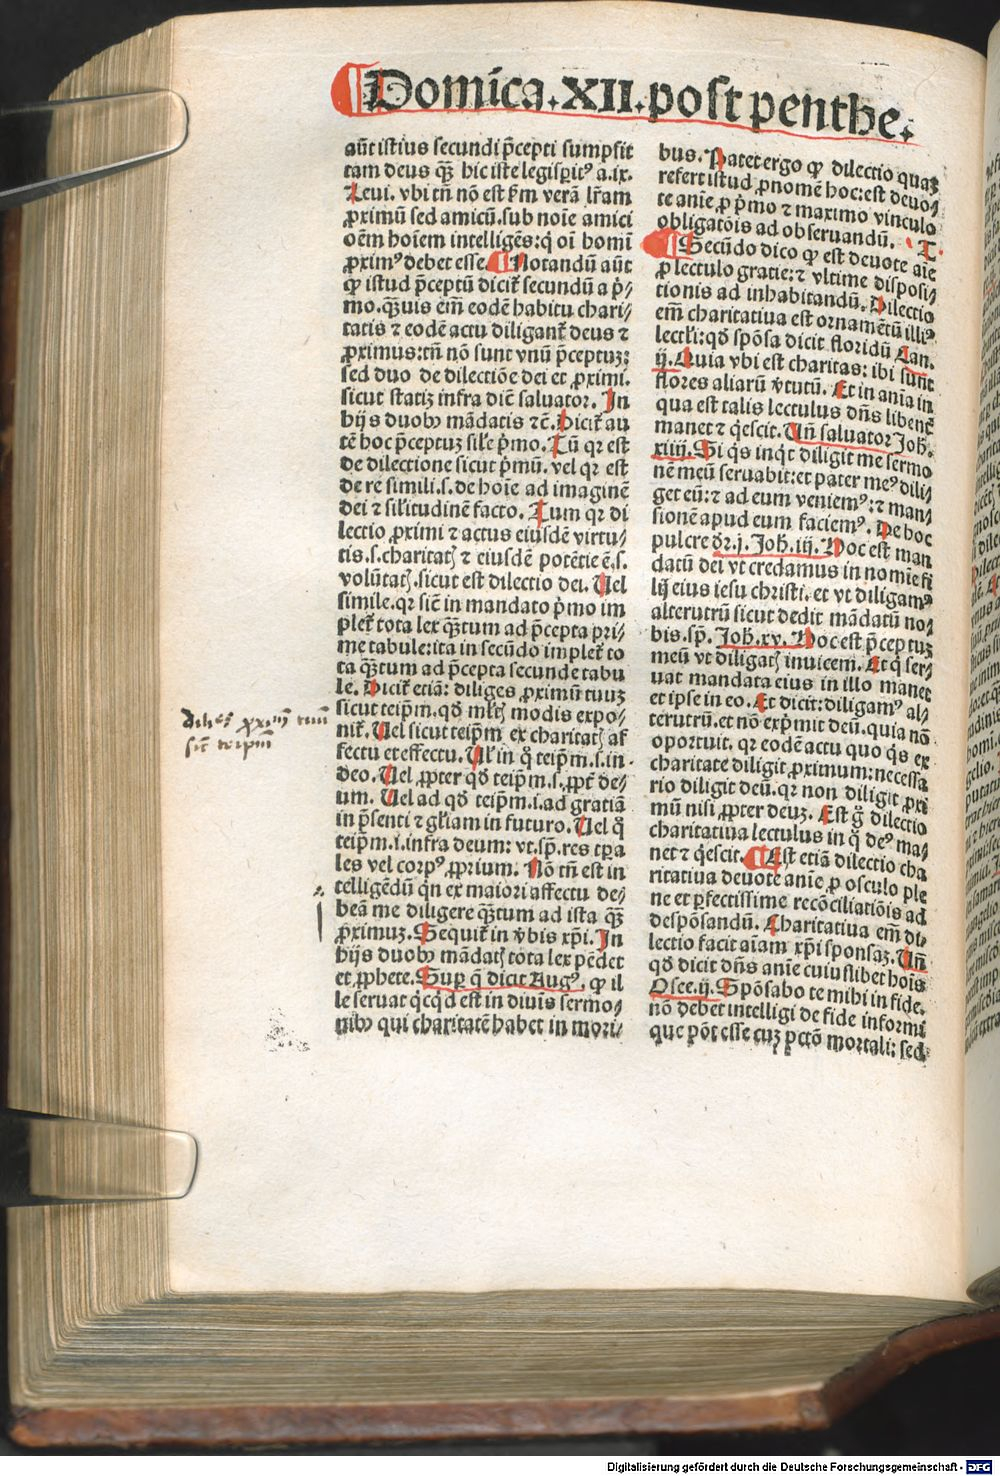 Domīca.XII.post penthe.
aūt istius secundi p̄cepti sumpsit
tam deus q̄ꝫ hic iste legisꝑitꝰ a.ix.
Leui. vbi tn̄ nō est ẜm verā lr̄am
ꝓximū sed amicū.sub noīe amici
oēm hoīem intelligēs:q̇ oī homī
ꝓximꝰ debet esse. Notandū aūt
ꝙ istud p̄ceptū dicit̄ secundū a p̄/
mo.q̄ꝫuis em̄ eodē habitu chari/
tatis ⁊ eodē actu diligant̄ deus ⁊
ꝓximus:tn̄ nō sunt vnū p̄ceptuꝫ:
sed duo de dilectiōe dei et ꝓximi.
sicut statiꝫ infra dicē saluator. In
hijs duobꝰ mādatis ⁊c̄. Dicit̄ au
tē hoc p̄ceptuꝫ sil'e p̄mo. Tū qꝛ est
de dilectione sicut p̄mū. vel qꝛ est
de re simili.s.de hoīe ad imaginē
dei ⁊ sil'itudinē facto. Tum qꝛ di
lectio ꝓximi ⁊ actus eiusdē virtu/
tis.s.charitatꝭ ⁊ eiusdē potētie ē.s.
volūtatꝭ.sicut est dilectio dei. Uel
simile.qꝛ sic̄ in mandato p̄mo im
plet̄ tota lex q̄ꝫtum ad p̄cepta pri/
me tabule:ita in secūdo implet̄ to
ta q̄ꝫtum ad p̄cepta secunde tabu
le. Dicit̄ etiā: diliges ꝓximū tuuꝫ
sicut teip̄m.qd̄ ml'tꝭ modis expo/
nit̄. Uel sicut teip̄m ex charitatꝭ af
fectu et effectu. Ul' in q̄ teip̄m.s.in
deo. Uel ꝓpter qd̄ teip̄m.s.ꝓpt̄ de/
um. Uel ad qd̄ teip̄m.i.ad gratiā
in p̄senti ⁊ gl'iam in futuro. Uel q̄
teip̄m.i.infra deum: vt.sp̄.res tꝑa
les vel corpꝰ ꝓprium. Nō tn̄ est in
telligēdū qn̄ ex maiori affectu de/
beā me diligere q̄ꝫtum ad ista q̄ꝫ
ꝓximuꝫ. Sequit̄ in v̄bis xp̄i. In
hijs duobꝰ mādatꝭ tota lex pēdet
et ꝓphete. Suꝑ q̄ dicit Augꝰ. ꝙ il
le seruat q̇cq̇d est in diuīs sermo/
nibꝰ qui charitatē habet in mori/
diliges ꝓximū tuū
sic̄ teip̄m
bus. Patet ergo ꝙ dilectio quaꝫ
refert istud ꝓnomē hoc:est deuo/
te anīe ꝓ p̄mo ⁊ maximo vinculo
obligatōis ad obseruandū. T.
Secūdo dico ꝙ est deuote aīe
ꝓ lectulo gratie:⁊ vltime disposi/
tionis ad inhabitandū. Dilectio
em̄ charitatiua est ornamētū illiꝰ
lectl'i:qd̄ spōsa dicit floridū Can.
ij. Quia vbi est charitas: ibi sunt
flores aliarū v̄tutū. Et in anīa in
qua est talis lectulus dn̄s libent̄
manet ⁊ q̇escit. Un̄ saluator Joh.
xiiij. Si q̇s inq̇t diligit me sermo
nē meū seruabit:et pater meꝰ dili/
get eū:⁊ ad eum veniemꝰ:⁊ man/
sionē apud eum faciemꝰ. De hoc
pulcre dr̄.j. Joh. iij. Hoc est man
datū dei vt credamus in nomīe fi
lij eius iesu christi. et vt diligamꝰ
alterutrū sicut dedit mādatū no/
bis.sp̄. Joh.xv. Hoc est p̄ceptuꝫ
meū vt diligatꝭ inuicem. Et q̇ ser/
uat mandata eius in illo manet
et ipse in eo. Et dicit:diligamꝰ al/
terutrū.et nō exp̄mit deū.quia nō
oportuit. qꝛ eodē actu quo q̇s ex
charitate diligit ꝓximum:necessa
rio diligit deū.qꝛ non diligit ꝓxi
mū nisi ꝓpter deuꝫ. Est ḡ dilectio
charitatiua lectulus in q̊ deꝰ ma/
net ⁊ q̇escit. Est etiā dilectio cha
ritatiua deuote anīe ꝓ osculo ple
ne et ꝑfectissime recōciliatiōis ad
despōsandū. Charitatiua em̄ di/
lectio facit aīam xp̄i sponsaꝫ. Un̄
qd̄ dicit dn̄s anīe cuiuslibet hoīs
Osee.ij. Spōsabo te mihi in fide.
nō debet intelligi de fide informi
que pōt esse cuꝫ pctō mortali: sed
Digitalisierung gefördert durch die Deutsche Forschungsgemeinschaft - DFG